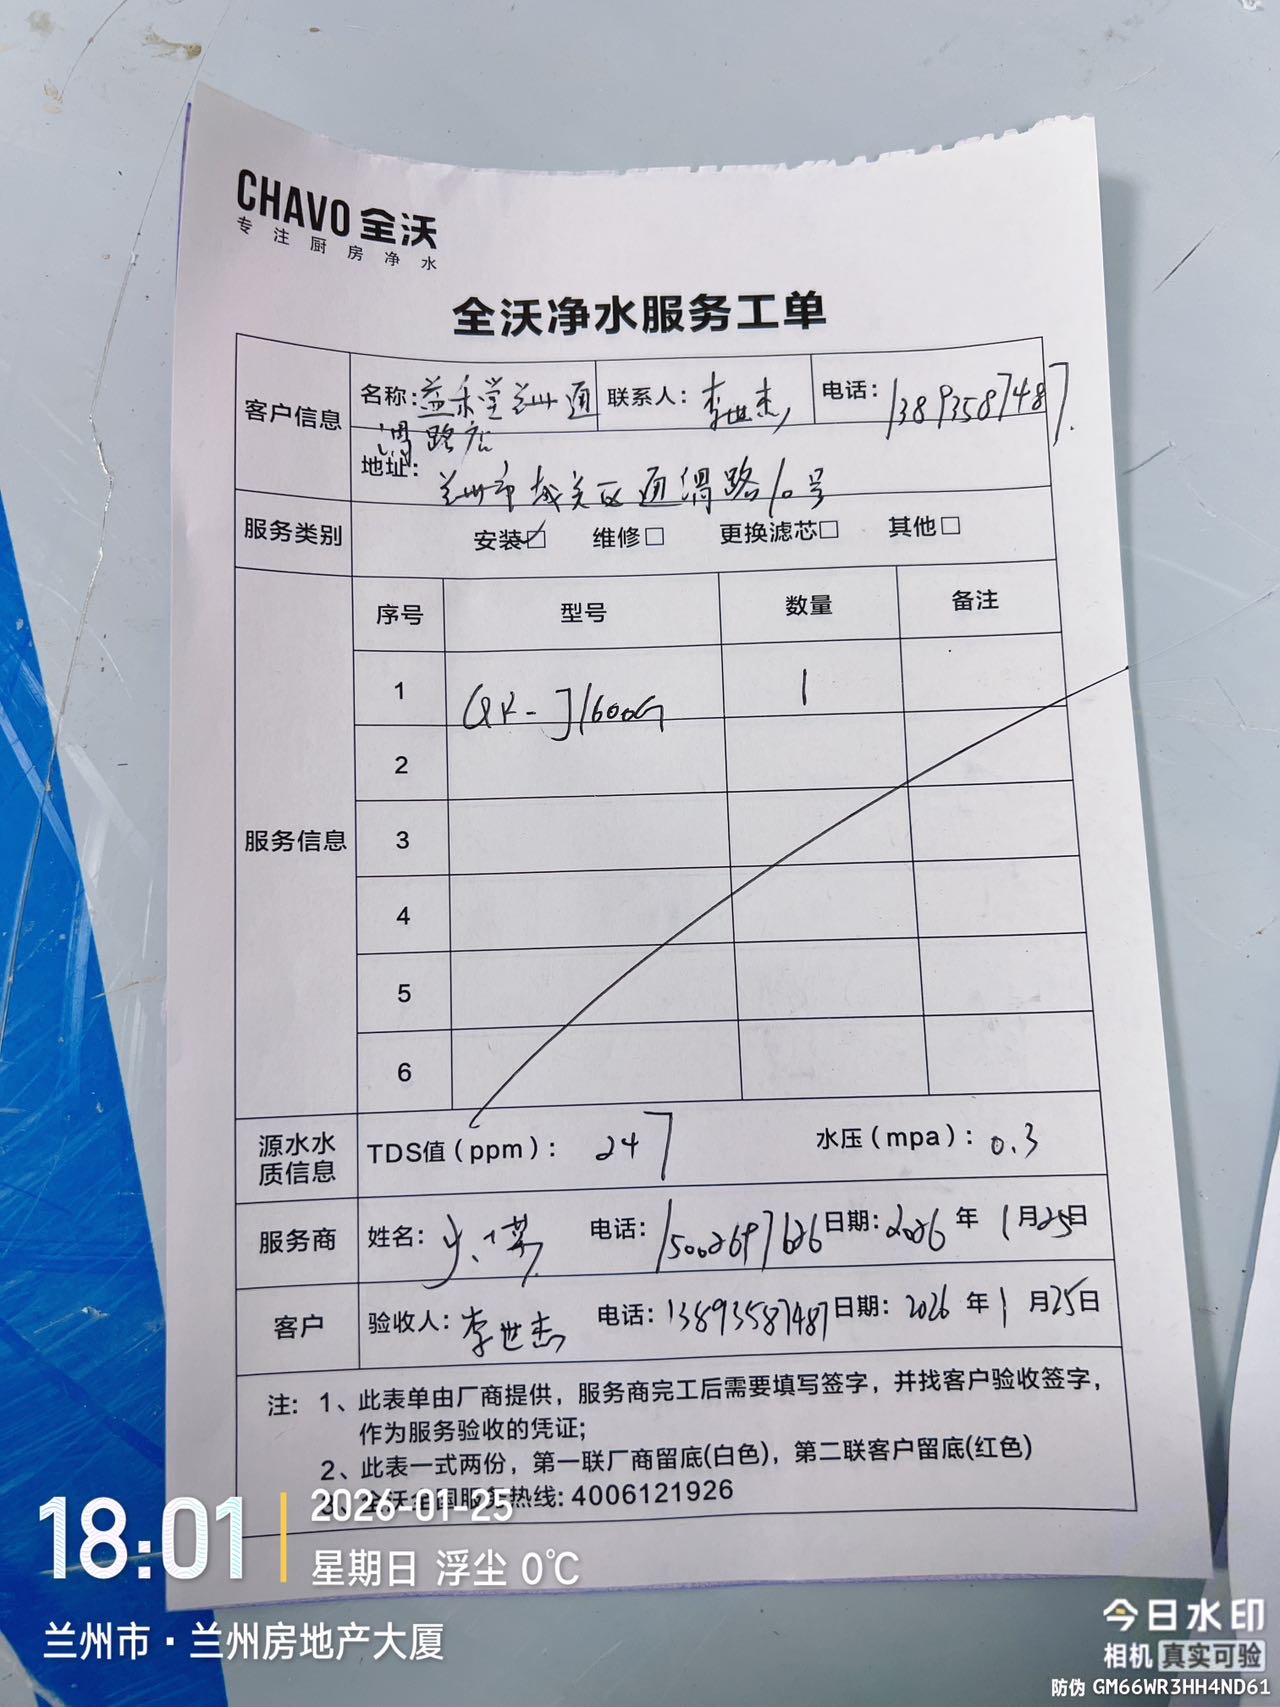 CHAVO 全沃
专注厨房净水
全沃净水服务工单
客户信息 名称:益禾堂兰州通渭路店 联系人:李世杰 电话:13893587487
地址:兰州市城关区通渭路10号
服务类别 安装☑ 维修□ 更换滤芯□ 其他□
服务信息 序号 型号 数量 备注
1 QR-J1600G 1
2
3
4
5
6
源水水质信息 TDS值(ppm): 247 水压(mpa): 0.3
服务商 姓名: 电话:15002697626 日期:2026年1月25日
客户 验收人:李世杰 电话:13893587487 日期:2026年1月25日
注: 1、此表单由厂商提供,服务商完工后需要填写签字,并找客户验收签字,
作为服务验收的凭证;
2、此表一式两份,第一联厂商留底(白色),第二联客户留底(红色)
3、全沃全国服务热线:4006121926
18:01 2026-01-25
星期日 浮尘 0℃
兰州市·兰州房地产大厦
今日水印
相机 真实可验
防伪 GM66WR3HH4ND61